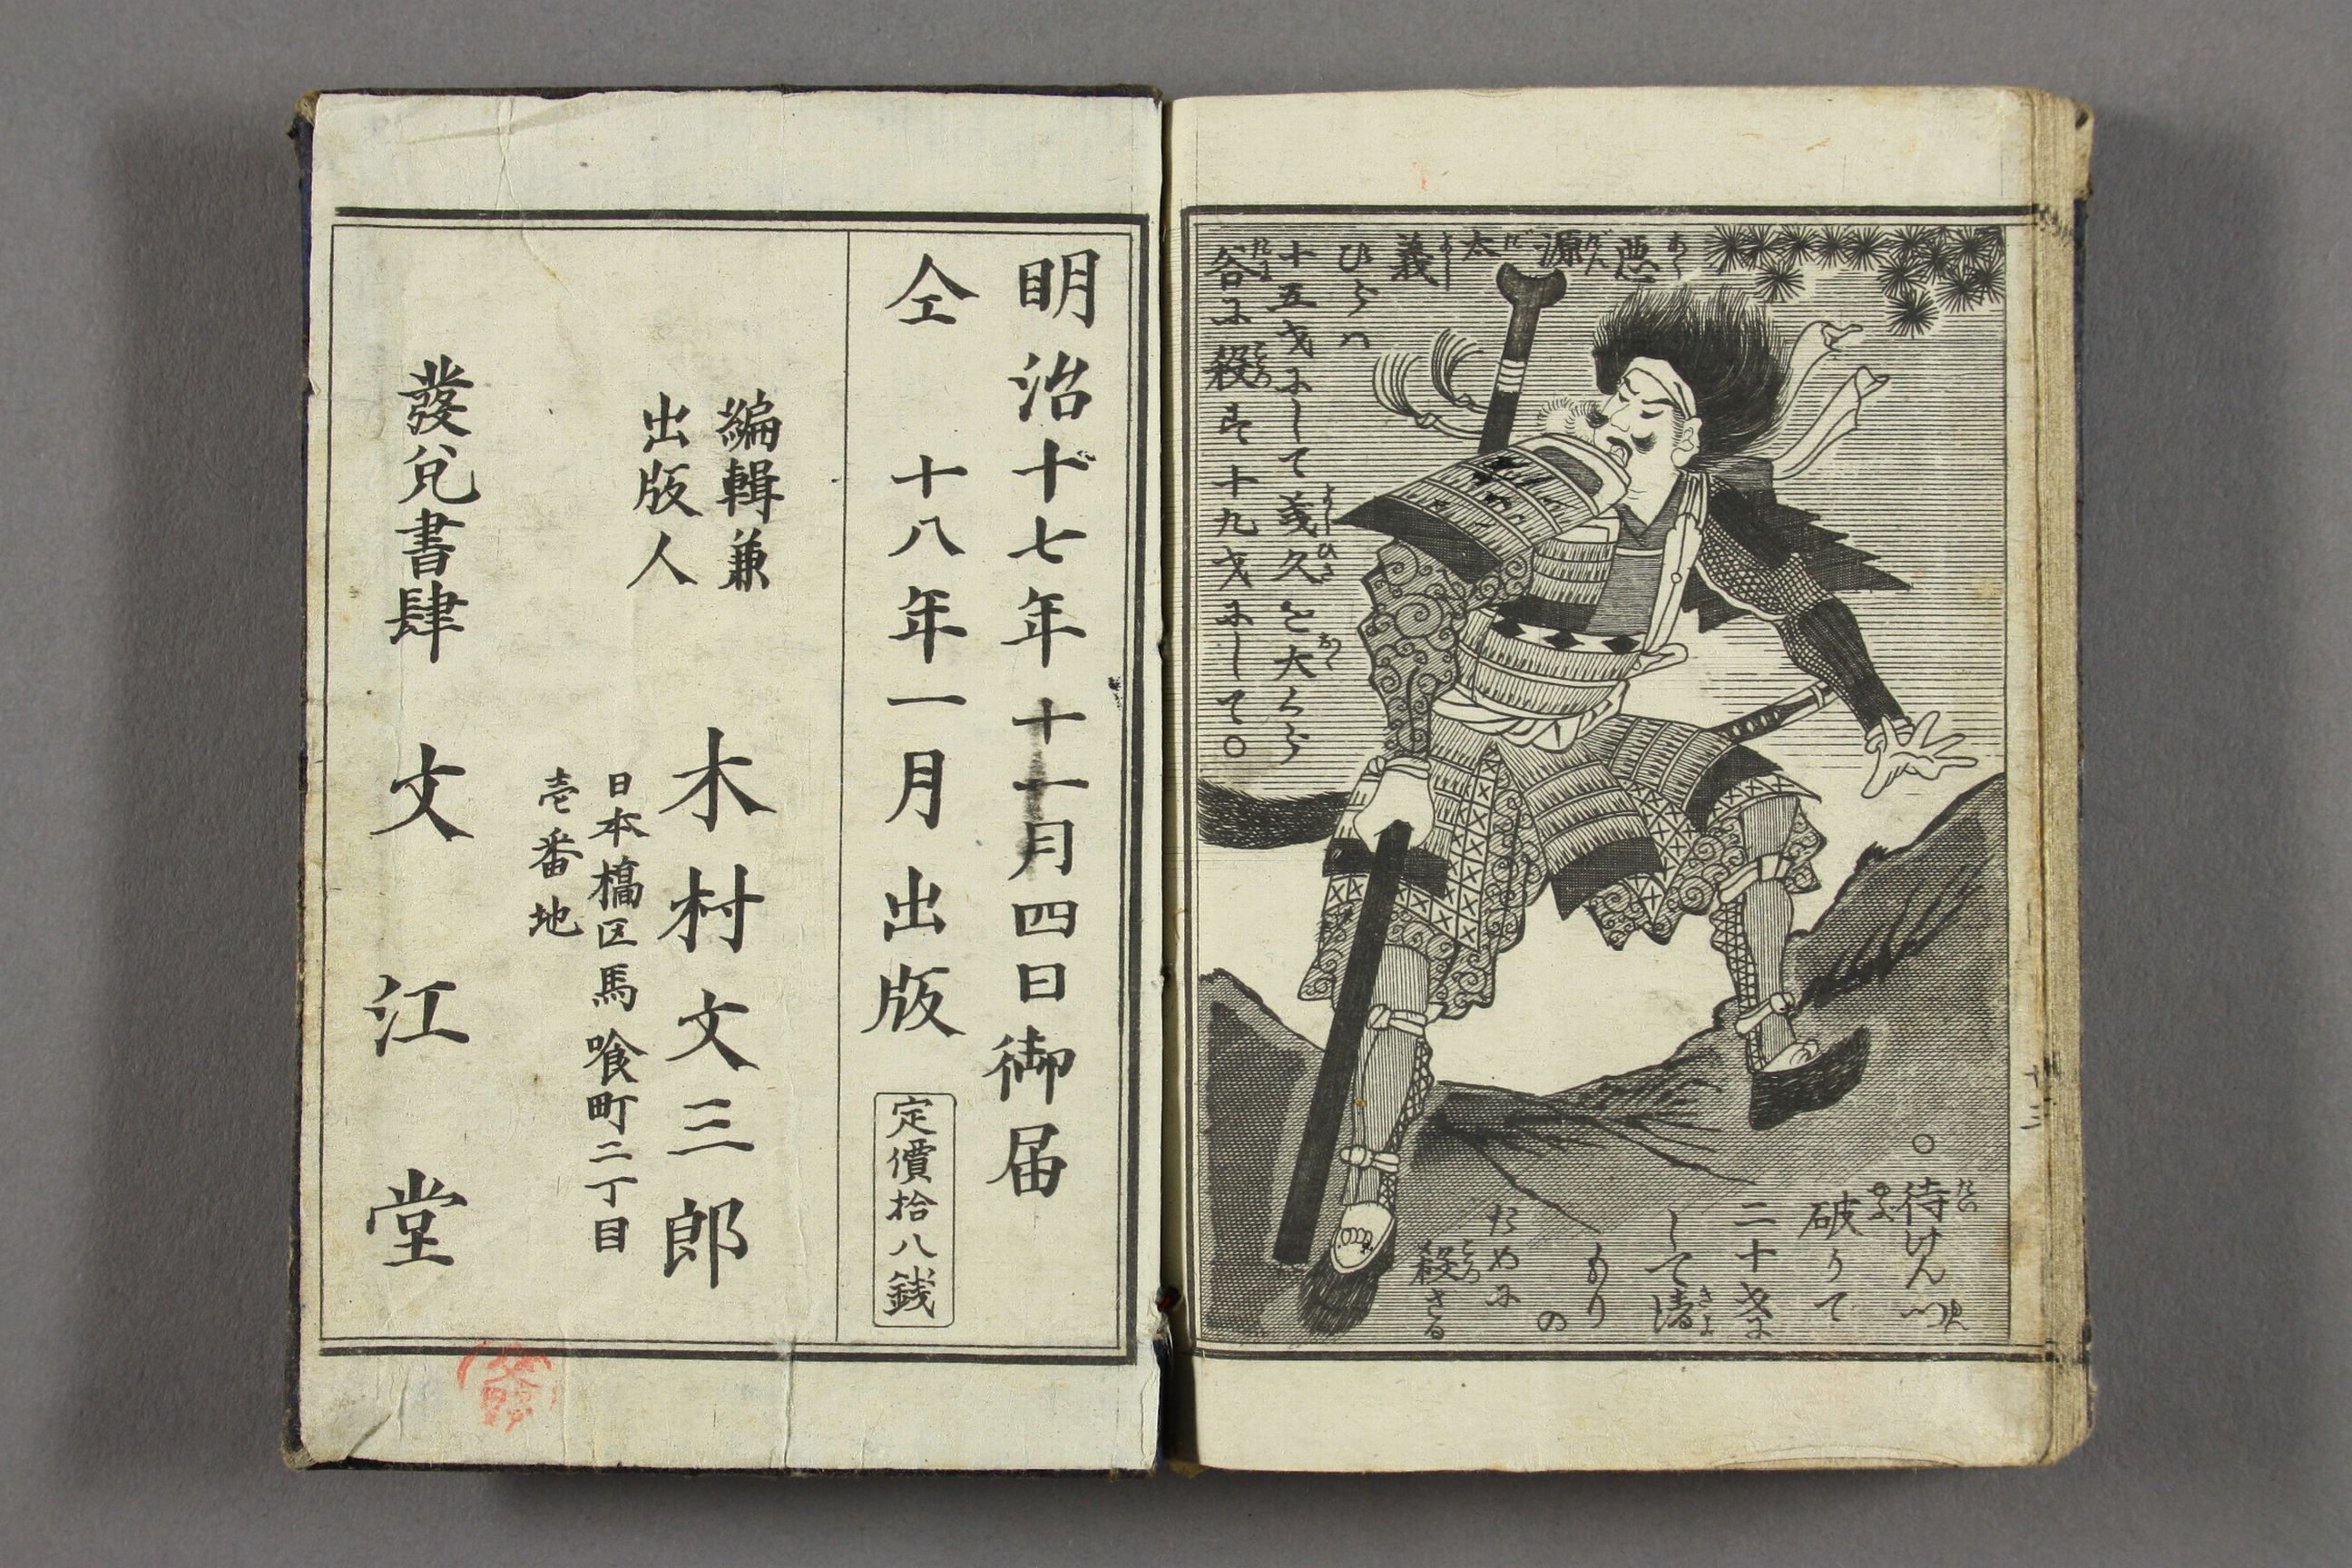 悪源太
義
ひらハ
十五才にして義久を大くら
谷に殺す十九才にして〇
〇待けん
破りて
二十才に
して清
もり
の
ために
殺さる
十三
明治十七年十一月四日御届
仝十八年一月出版
定價拾八銭
編輯兼
出版人
木村文三郎
日本橋区馬喰町二丁目
壱番地
發兌書肆 文江堂